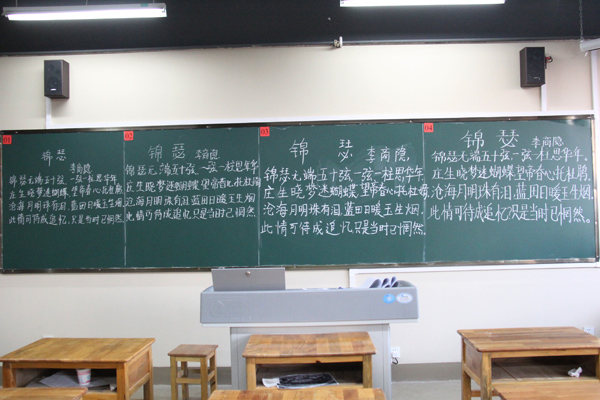 01
锦瑟
李商隐
锦瑟无端五十弦一弦一柱思华年
庄生晓梦迷蝴蝶望帝春心托杜鹃
沧海月明珠有泪蓝田日暖玉生烟
此情可待成追忆只是当时已惘然
02
锦瑟
李商隐
锦瑟无端五十弦一弦一柱思华年
庄生晓梦迷蝴蝶望帝春心托杜鹃
沧海月明珠有泪蓝田日暖玉生烟
此情可待成追忆只是当时已惘然
03
锦瑟
李商隐
锦瑟无端五十弦一弦一柱思华年
庄生晓梦迷蝴蝶望帝春心托杜鹃
沧海月明珠有泪蓝田日暖玉生烟
此情可待成追忆只是当时已惘然
04
锦瑟
李商隐
锦瑟无端五十弦一弦一柱思华年。
庄生晓梦迷蝴蝶,望帝春心托杜鹃,
沧海月明珠有泪,蓝田日暖玉生烟。
此情可待成追忆只是当时已惘然。